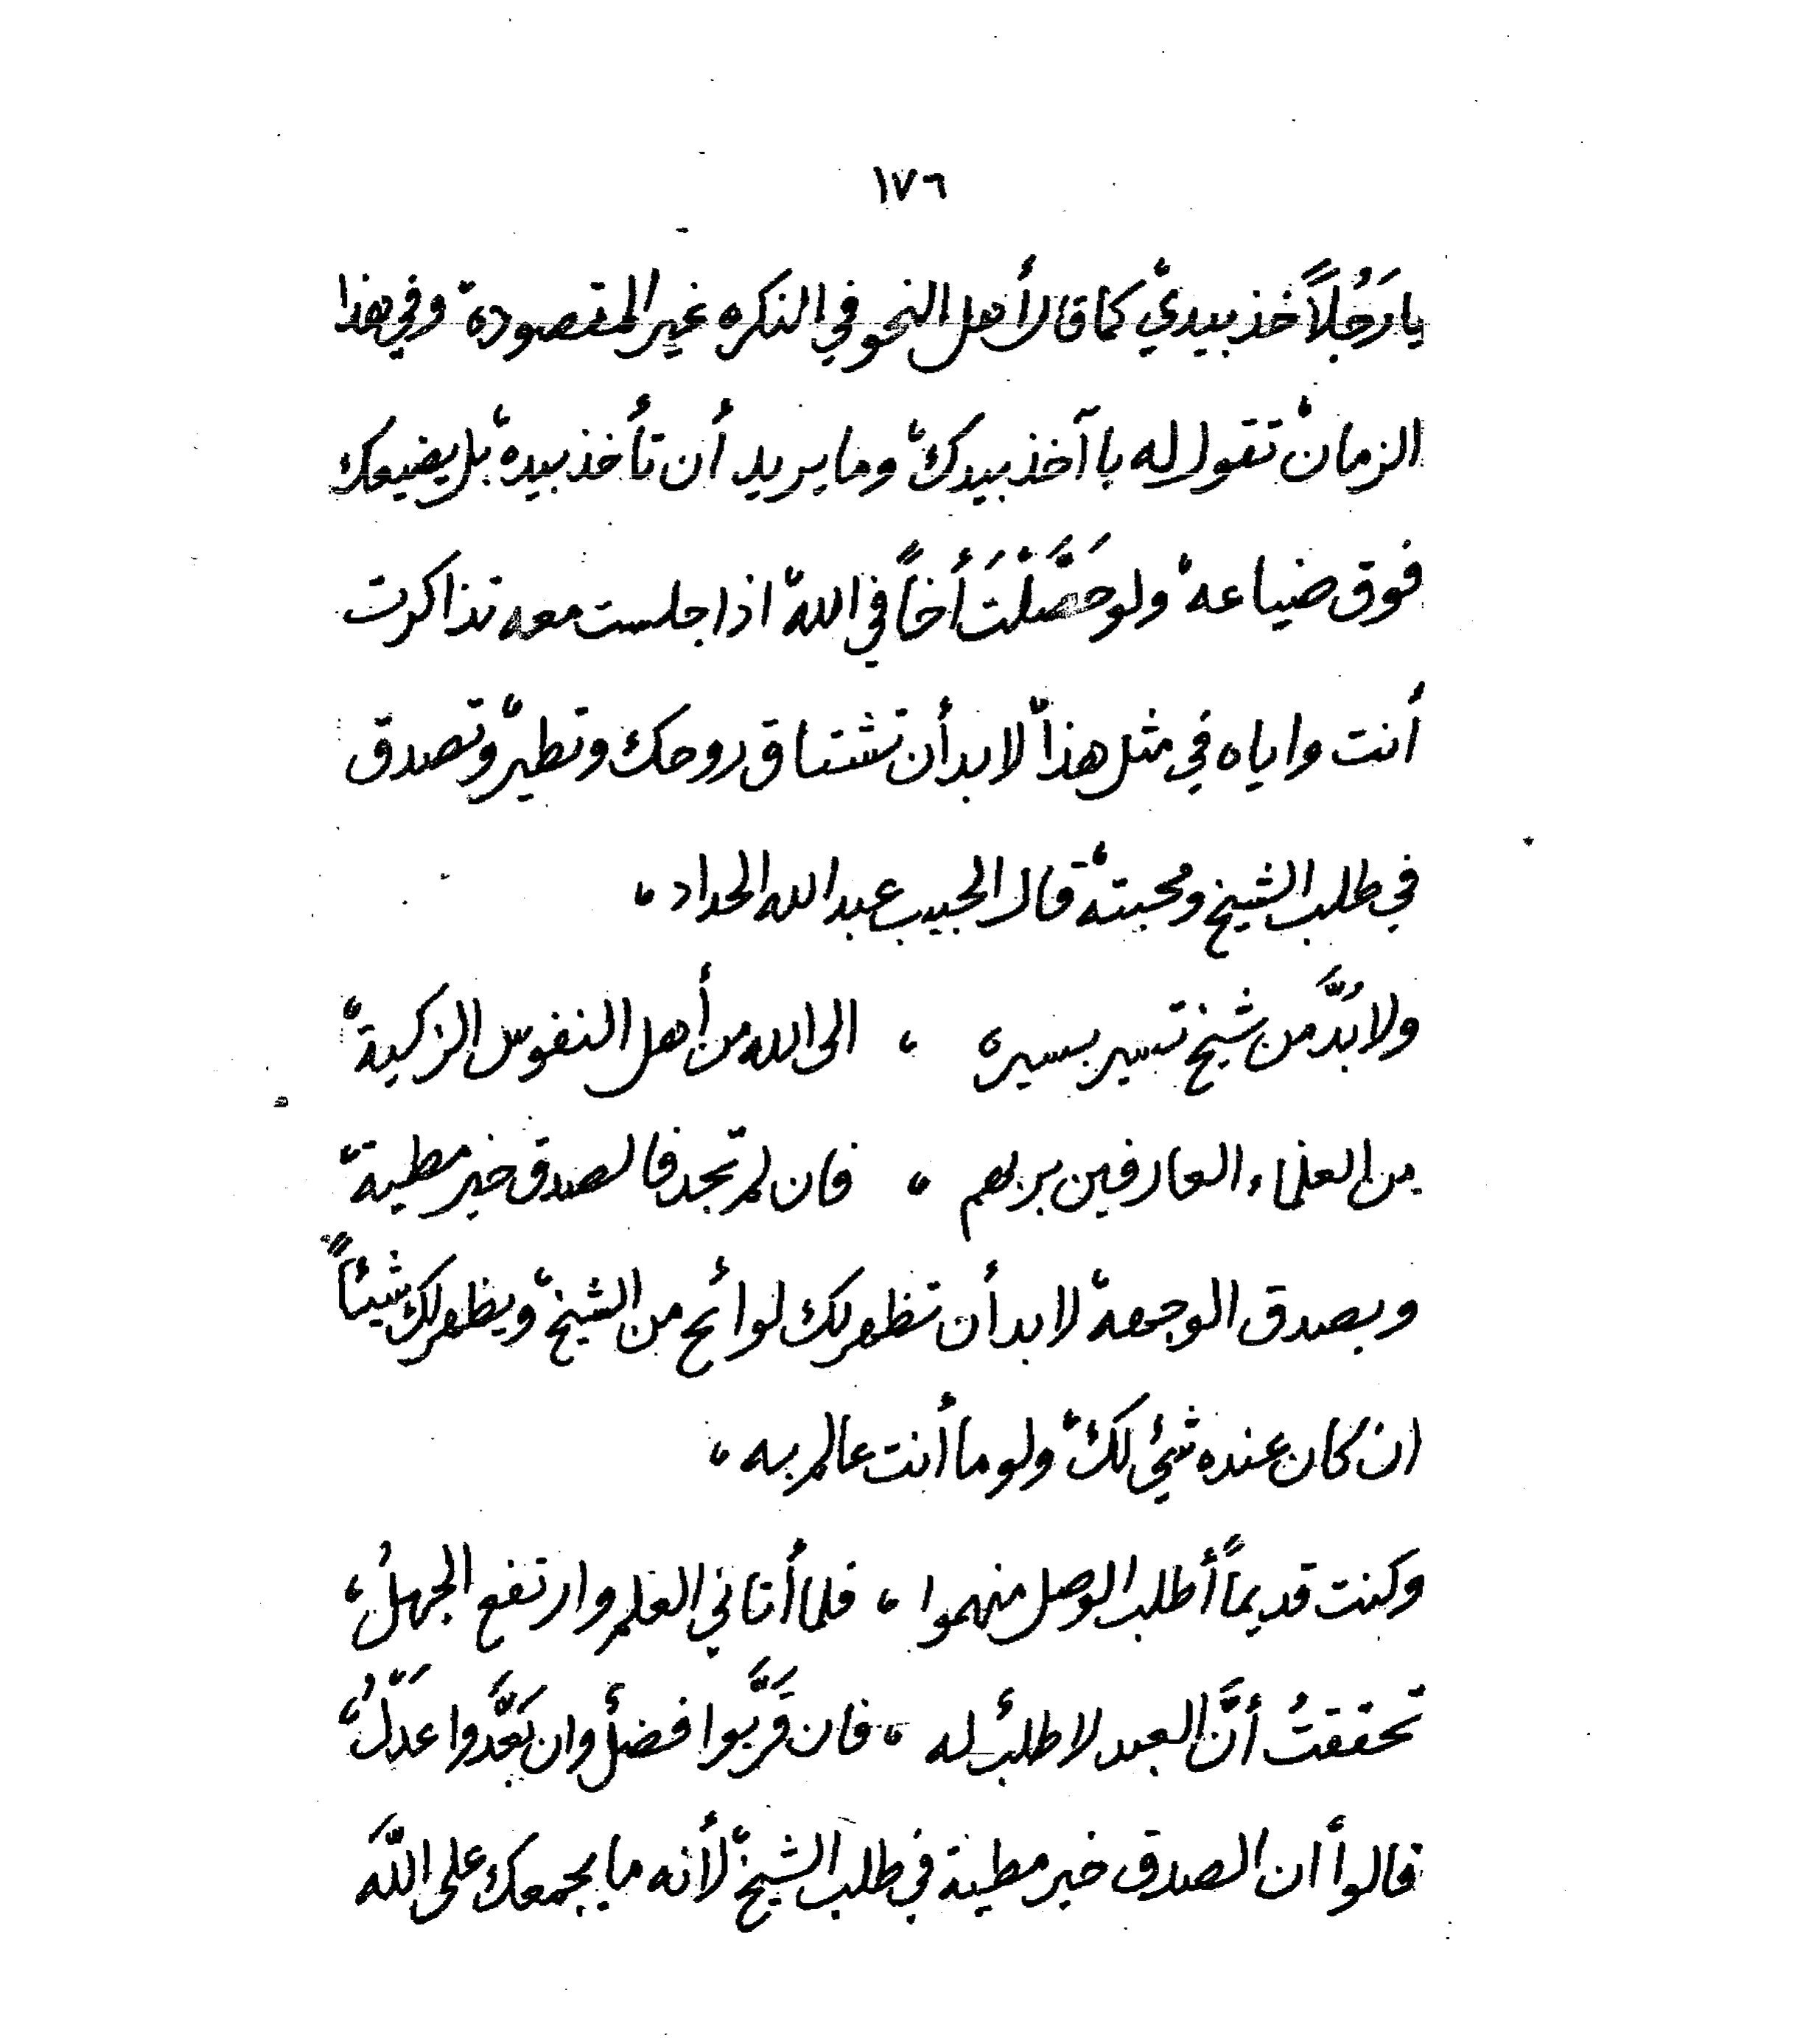 ١٧٦
يا رَجُلاً خذ بيديْ، كما قال أهل النحو في النكره غير المقصودة، وفي هذا
الزمان، تقول له با آخذ بيدك، وما يريد أن تأخذ بيده، بل يضيعك
فوق ضياعه، ولو حَصَّلْتَ أخاً في الله، اذا جلست معه تذاكرت
أنت واياه في مثل هذا، لا بد أن تشتاق روحك وتطير، وتصدق
في طلب الشيخ ومحبته، قال الحبيب عبد الله الحداد،
ولا بُدَّ من شيخ تسير بسيره ، الى الله من أهل النفوس الزكية،
من العلماء العارفين بربهم ، فان لم تجد فالصدق خير مطية،
وبصدق الوجهة، لا بد أن تظهر لك لوائح من الشيخ، ويظهر لك شيئاً
ان كان عنده شيء لك، ولو ما أنت عالم به،
وكنت قديماً أطلب الوصل منهموا ، فلما أتاني العلم وارتفع الجهلُ،
تحققتُ أنَّ العبد لا طلبٌ له ، فان قَرَّبوا فضلٌ وان بَعَّدوا عَدْلُ،
قالوا أن الصدق خير مطية في طلب الشيخ، لأنه ما يجمعك على اللَّه